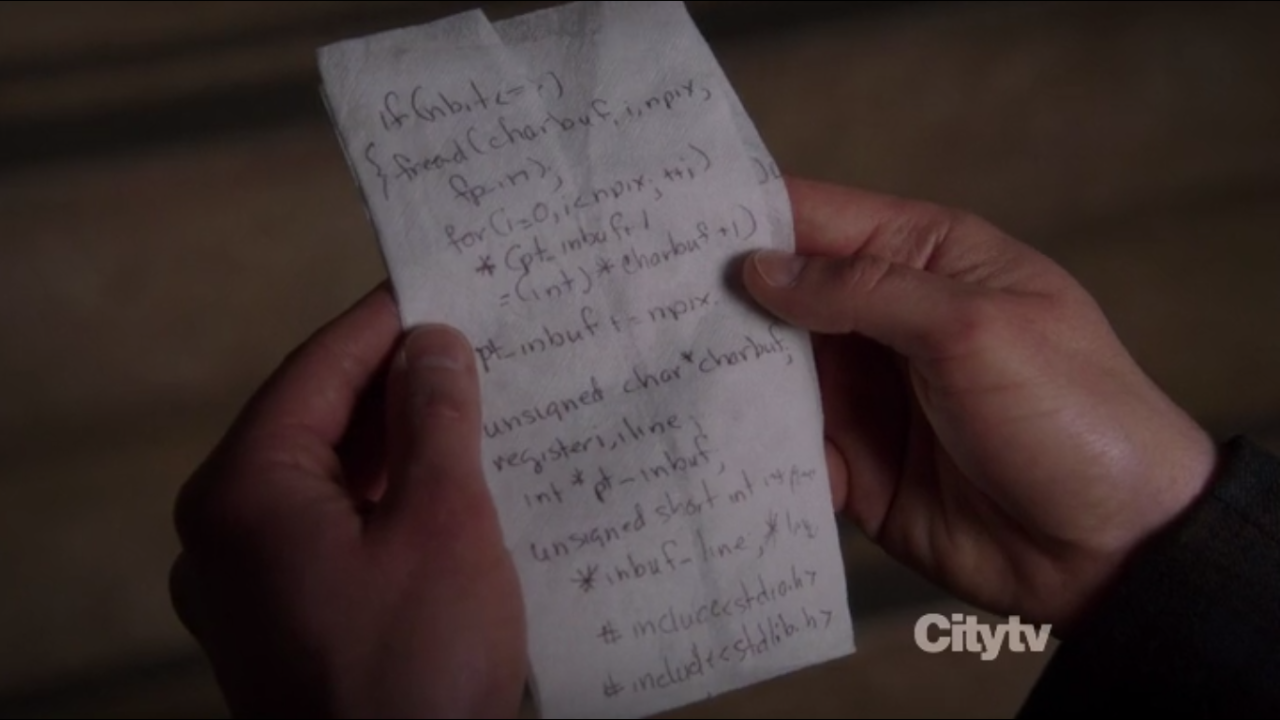 if(nbit<=;)
{ fread(charbuf, i, npix,
fp_in);
for(i=0, i<npix; ++i)
*(pt_inbuf+1
=(int)*charbuf+1)
pt_inbuf += npix.
unsigned char*charbuf;
register i, iline;
int *pt_inbuf,
unsigned short int
*inbuf_line,
# include<stdio.h>
# include<stdlib.h>
Citytv